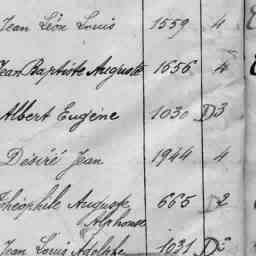 Jean Léon Louis 1559 4
Jean Baptiste Auguste 1656 4
Albert Eugène 1030 D3
Désiré Jean 1944 4
Théophile Auguste 665 2
Alphonse
Jean Louis Adolphe 1031 D3